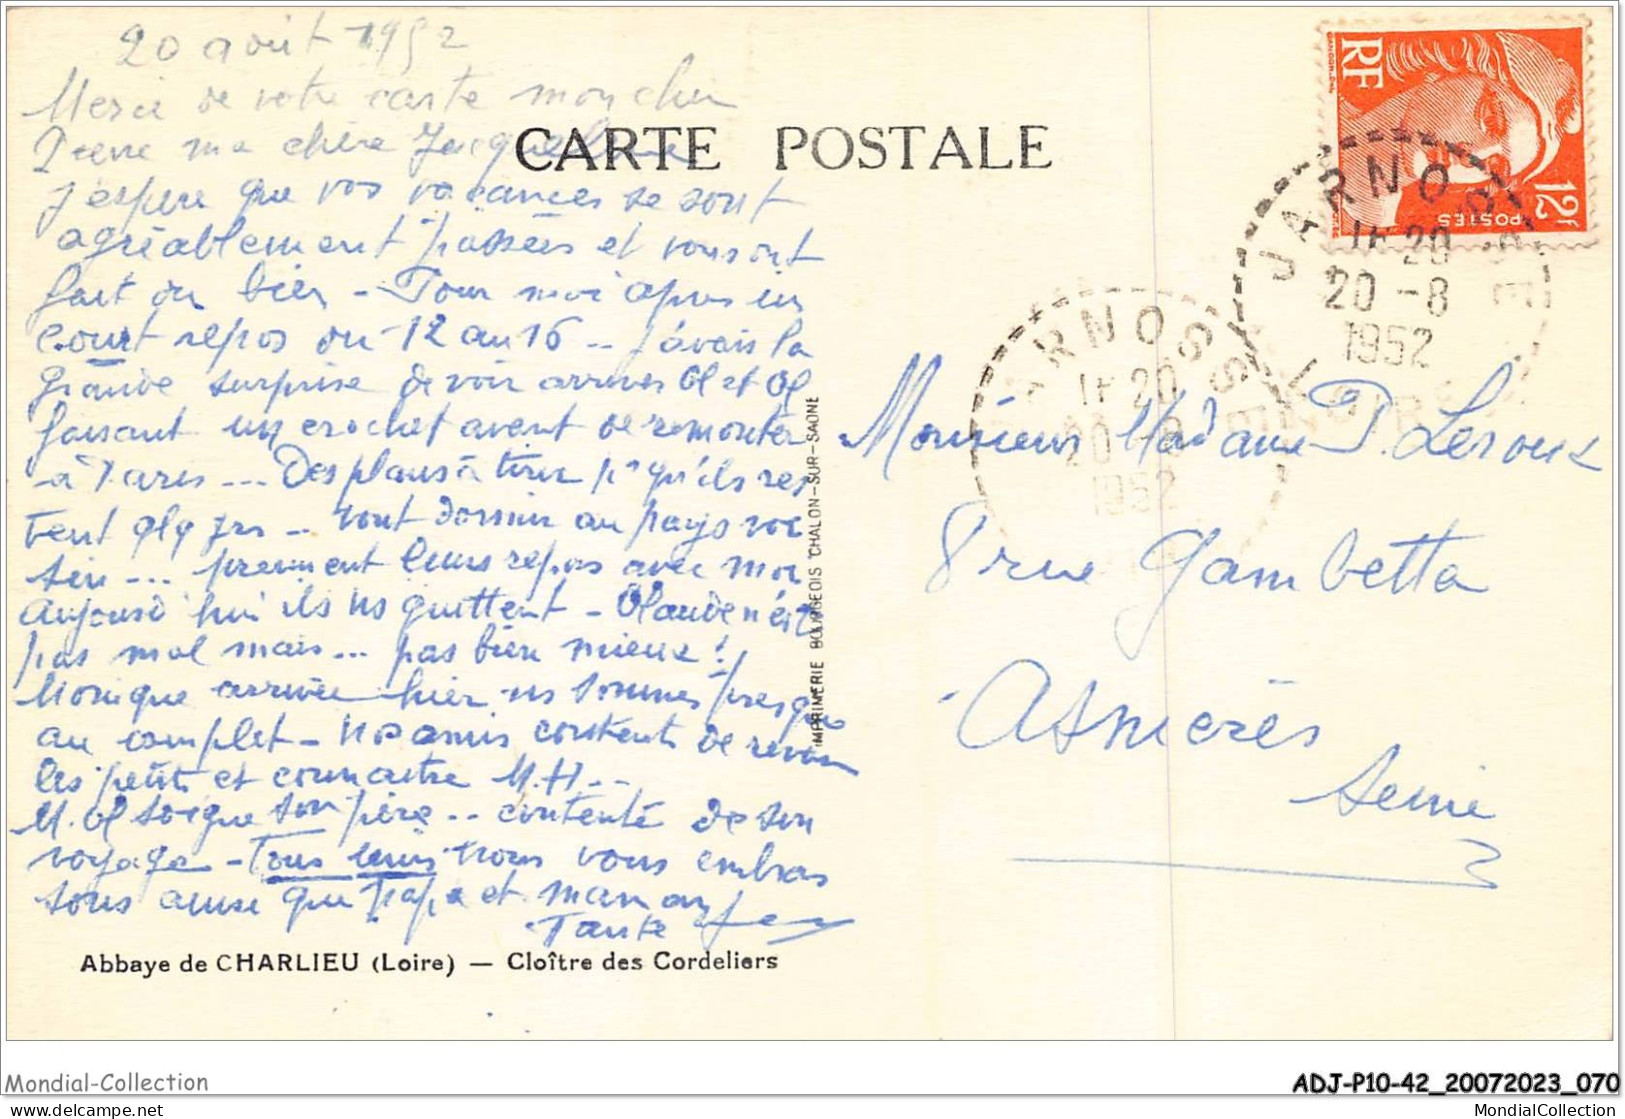 20 août 1952
Merci de votre carte mon cher
Pierre ma chère Jacqueline
J'espère que vos vacances se sont
agréablement passées et vous ont
fait du bien - Pour moi après un
court repos du 12 au 16 - j'avais la
grande surprise de voir arriver Cl et Cl
faisant un crochet avant de remonter
à Paris ... Des plans à tirer pr qu'ils res
tent qlq jrs - vont dormir au pays voi
sin ... prennent leurs repas avec moi
aujourd'hui ils ns quittent - Claude n'est
pas mal mais ... pas bien mieux !
Monique arrivée hier ns sommes presque
au complet - Nos amis contents de revoir
les petits et connaître M.H. -
M. Cl soigne son père .. contente de son
voyage - Tous vous embras
sons ainsi que papa et maman
Tante
CARTE POSTALE
IMPRIMERIE BOURGEOIS CHALON-SUR-SAONE
RF
POSTES
12F
JARNOSSE
LOIRE
16 20
20 -8
1952
JARNOSSE
LOIRE
16 20
20 -8
1952
Monsieur Madame P. Leroux
8 rue Gambetta
Asnières
Seine
Abbaye de CHARLIEU (Loire) — Cloître des Cordeliers
Mondial-Collection
ADJ-P10-42_20072023_070
https://www.delcampe.net
MondialCollection